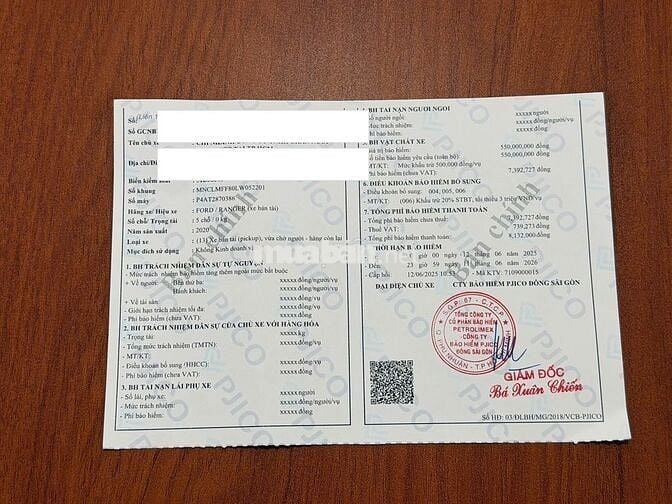 (Liên 1
Số:
Số GCNB
Tên chủ x
Địa chỉ/Đi
Biển kiểm soát
- Số khung : MNCLMFF80LW052201
- Số máy : P4AT2870386
- Hãng xe/ Hiệu xe : FORD / RANGER (xe bán tải)
- Số chỗ/ Trọng tải : 5 chỗ / 0 kg
- Năm sản xuất : 2020
- Loại xe : (13) Xe bán tải (pickup), vừa chở người - hàng còn lại
- Mục đích sử dụng : Không Kinh doanh vt
1. BH TRÁCH NHIỆM DÂN SỰ TỰ NGUYỆN
- Mức trách nhiệm bảo hiểm tăng thêm ngoài mức bắt buộc
+ Về người: Bên thứ ba: xxxxx đồng/người/vụ
Hành khách: xxxxx đồng/người/vụ
+ Về tài sản: xxxxx đồng/vụ
- Giới hạn trách nhiệm tối đa: xxxxx đồng/vụ
- Phí bảo hiểm (chưa VAT): xxxxx đồng
2. BH TRÁCH NHIỆM DÂN SỰ CỦA CHỦ XE VỚI HÀNG HÓA
- Trọng tải: xxxxx kg
- Tổng mức trách nhiệm (TMTN): xxxxx đồng/vụ
- MT/KT:
- Điều khoản bổ sung (/HHCC):
- Phí bảo hiểm (chưa VAT): xxxxx đồng
3. BH TAI NẠN LÁI PHỤ XE
- Số lái, phụ xe: xxxxx người
- Mức trách nhiệm: xxxxx đồng/người/vụ
- Phí bảo hiểm: xxxxx đồng
BH TAI NẠN NGƯỜI NGỒI
Số người ngồi: xxxxx người
Mức trách nhiệm: xxxxx đồng/người/vụ
Phí bảo hiểm: xxxxx đồng
BH VẬT CHẤT XE
Giá trị bảo hiểm: 550,000,000 đồng
Số tiền bảo hiểm yêu cầu (toàn bộ): 550,000,000 đồng
MT/KT: Mức khấu trừ 500,000 đồng/vụ
Phí bảo hiểm (chưa VAT): 7,392,727 đồng
6. ĐIỀU KHOẢN BẢO HIỂM BỔ SUNG
- Điều khoản bổ sung: 004, 005, 006
- MT/KT: (006) Khấu trừ 20% STBT, tối thiểu 3 triệu VND/vụ
7. TỔNG PHÍ BẢO HIỂM THANH TOÁN
- Phí bảo hiểm (chưa VAT): 7,392,727 đồng
- Thuế VAT: 739,273 đồng
- Tổng phí bảo hiểm thanh toán: 8,132,000 đồng
THỜI HẠN BẢO HIỂM
Từ: 23 giờ 00 ngày 12 tháng 06 năm 2025
Đến: 23 giờ 59 ngày 12 tháng 06 năm 2026
Cấp hồi : 12/06/2025 10:53 - Mã KTV: 7109000015
ĐẠI DIỆN CHỦ XE CTY BẢO HIỂM PJICO ĐÔNG SÀI GÒN
TỔNG CÔNG TY
CỔ PHẦN BẢO HIỂM
PETROLIMEX
CÔNG TY
BẢO HIỂM PJICO
ĐÔNG SÀI GÒN
GIÁM ĐỐC
Bá Xuân Chiến
Số HĐ: 03/ĐLBH/MG/2018/VCB-PJICO
Bản chính
Bản chính
PJICO
muaban.net